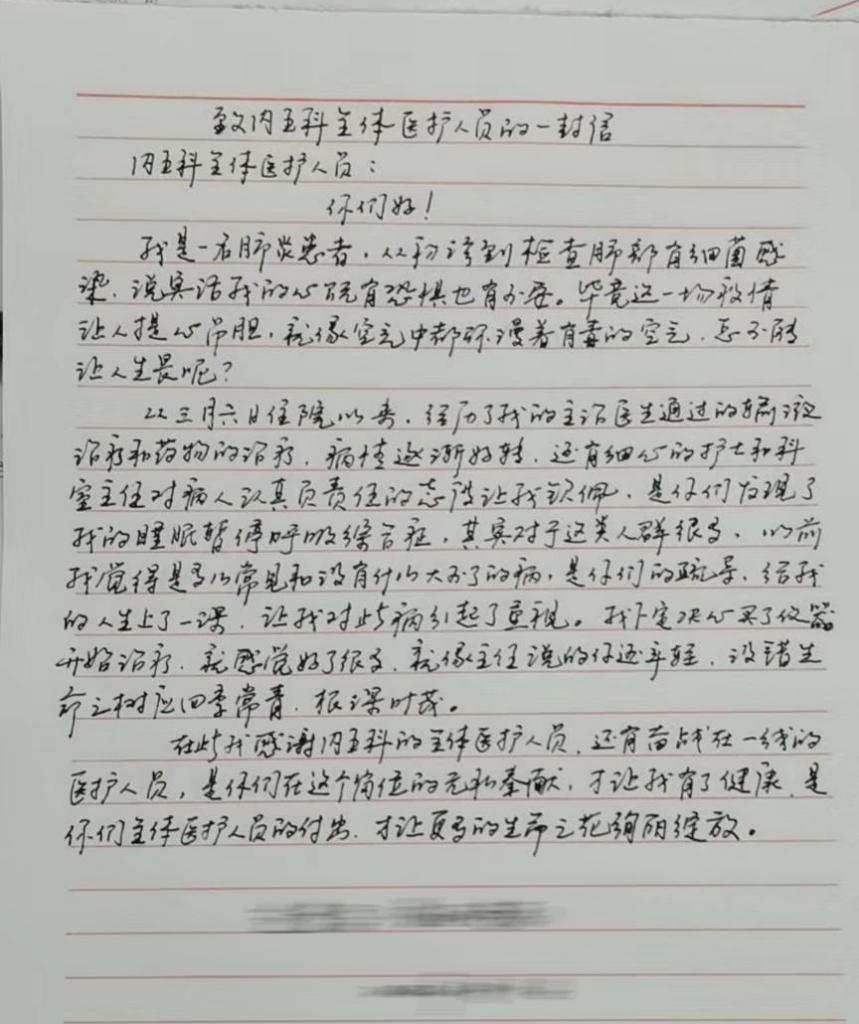 致内五科全体医护人员的一封信
内五科全体医护人员：
你们好！
我是一名肺炎患者，从初诊到检查肺部有细菌感
染，说实话我的心既有恐惧也有不安。毕竟这一场疫情
让人提心吊胆，就像空气中都弥漫着有毒的空气，怎不能
让人生畏呢？
从三月六日住院以来，经历了我的主治医生通过的输液
治疗和药物的治疗，病情逐渐好转，还有细心的护士和科
室主任对病人认真负责任的态度让我钦佩，是你们发现了
我的睡眠暂停呼吸综合症，其实对于这类人群很多，以前
我觉得是多么常见和没有什么大不了的病，是你们的疏导，给我
的人生上了一课，让我对此病引起了重视。我下定决心买了仪器
开始治疗，就感觉好了很多，就像主任说的你还年轻，没错生
命之树应四季常青，根深叶茂。
在此我感谢内五科的全体医护人员，还有奋战在一线的
医护人员，是你们在这个岗位的无私奉献，才让我有了健康，是
你们全体医护人员的付出，才让更多的生命之花绚丽绽放。